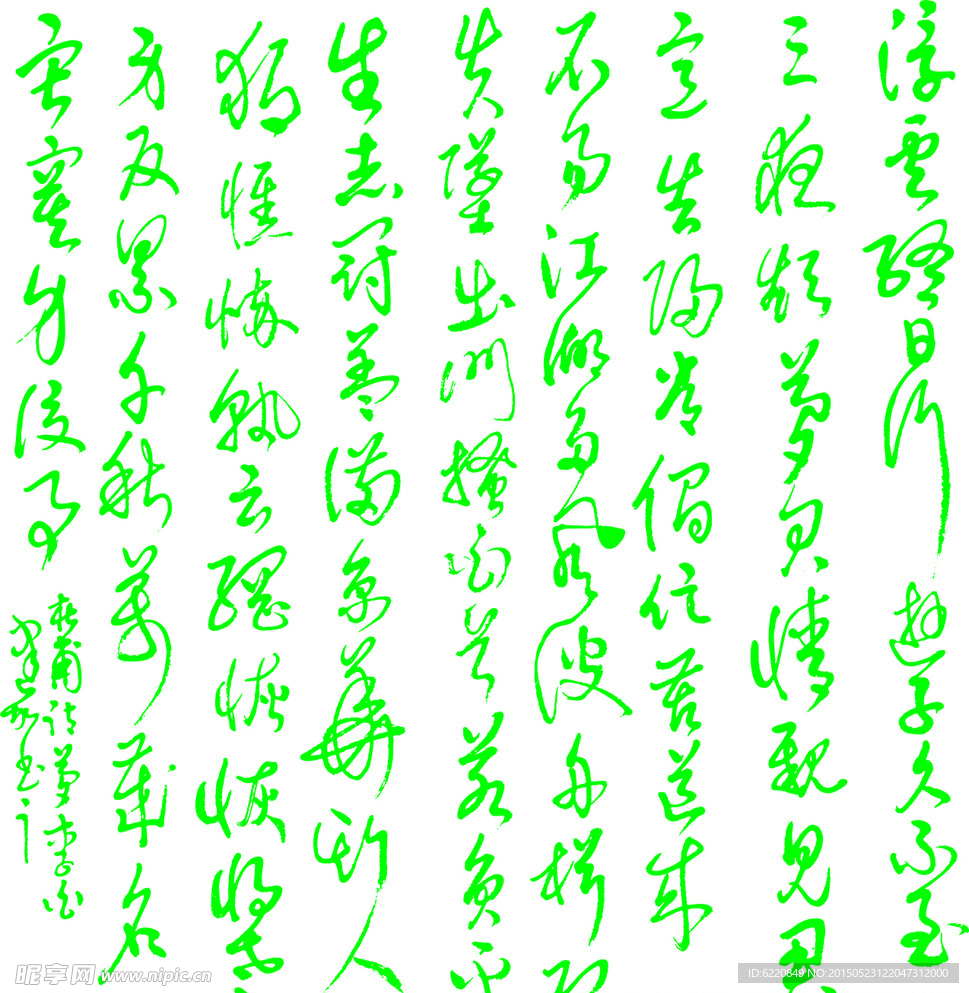 浮雲終日行遊子久不至
三夜頻夢君情親見君
意告歸常侷促苦道來
不易江湖多風波舟楫恐
失墜出門搔白首若負平
生志冠蓋滿京華斯人
獨憔悴孰云網恢恢將老
身反累千秋萬歲名
寂寞身後事
杜甫詩夢李白
昵享网 www.nipic.cn
ID:6220849 NO:20150523122047312000